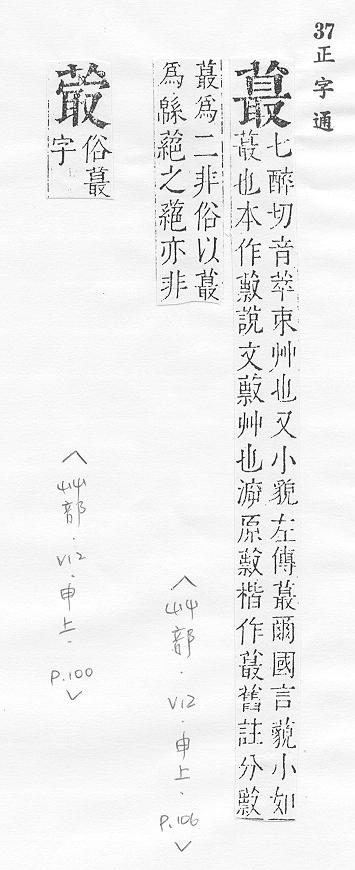 37正字通
蕞
七醉切音萃束艸也又小貌左傳蕞爾國言貌小如
也本作說文艸也原楷作蕞舊註分
蕞為二非俗以蕞
為緜蕝之蕝亦非
<艸部．V12．申上．P.106>
俗蕞
字
<艸部．V12．申上．P.100>